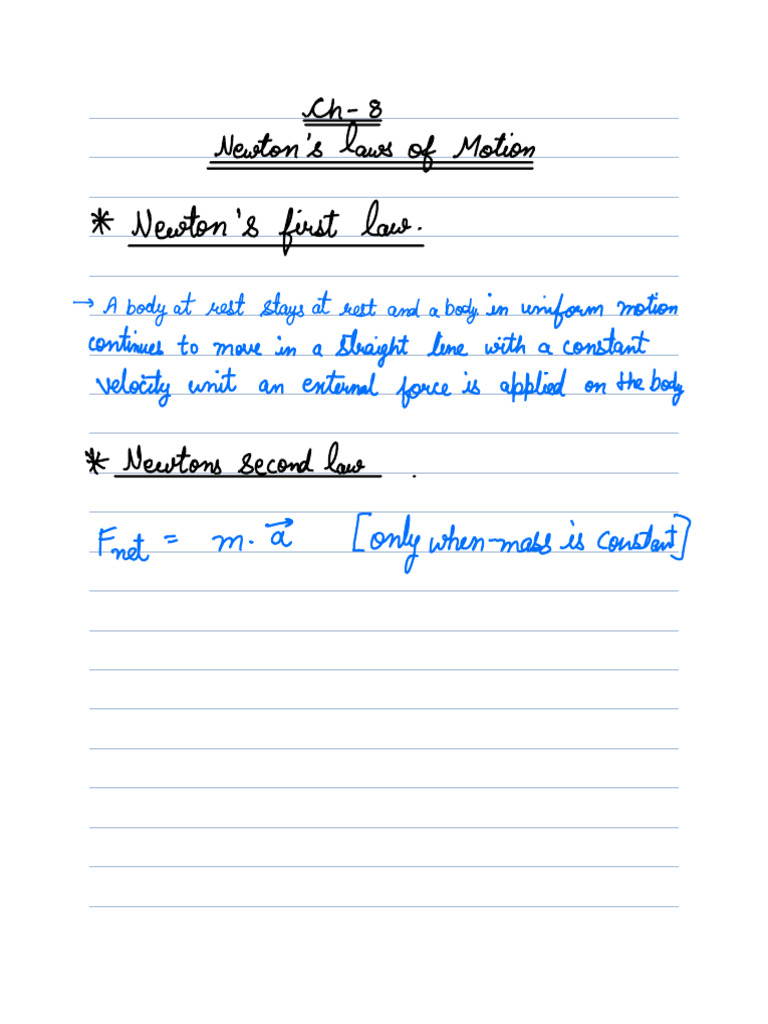 Ch-8
Newton's laws of Motion
* Newton's first law.
→ A body at rest stays at rest and a body in uniform motion
continues to move in a straight line with a constant
velocity unit an external force is applied on the body
* Newtons second law .
Fnet = m. a⃗ [only when mass is constant]